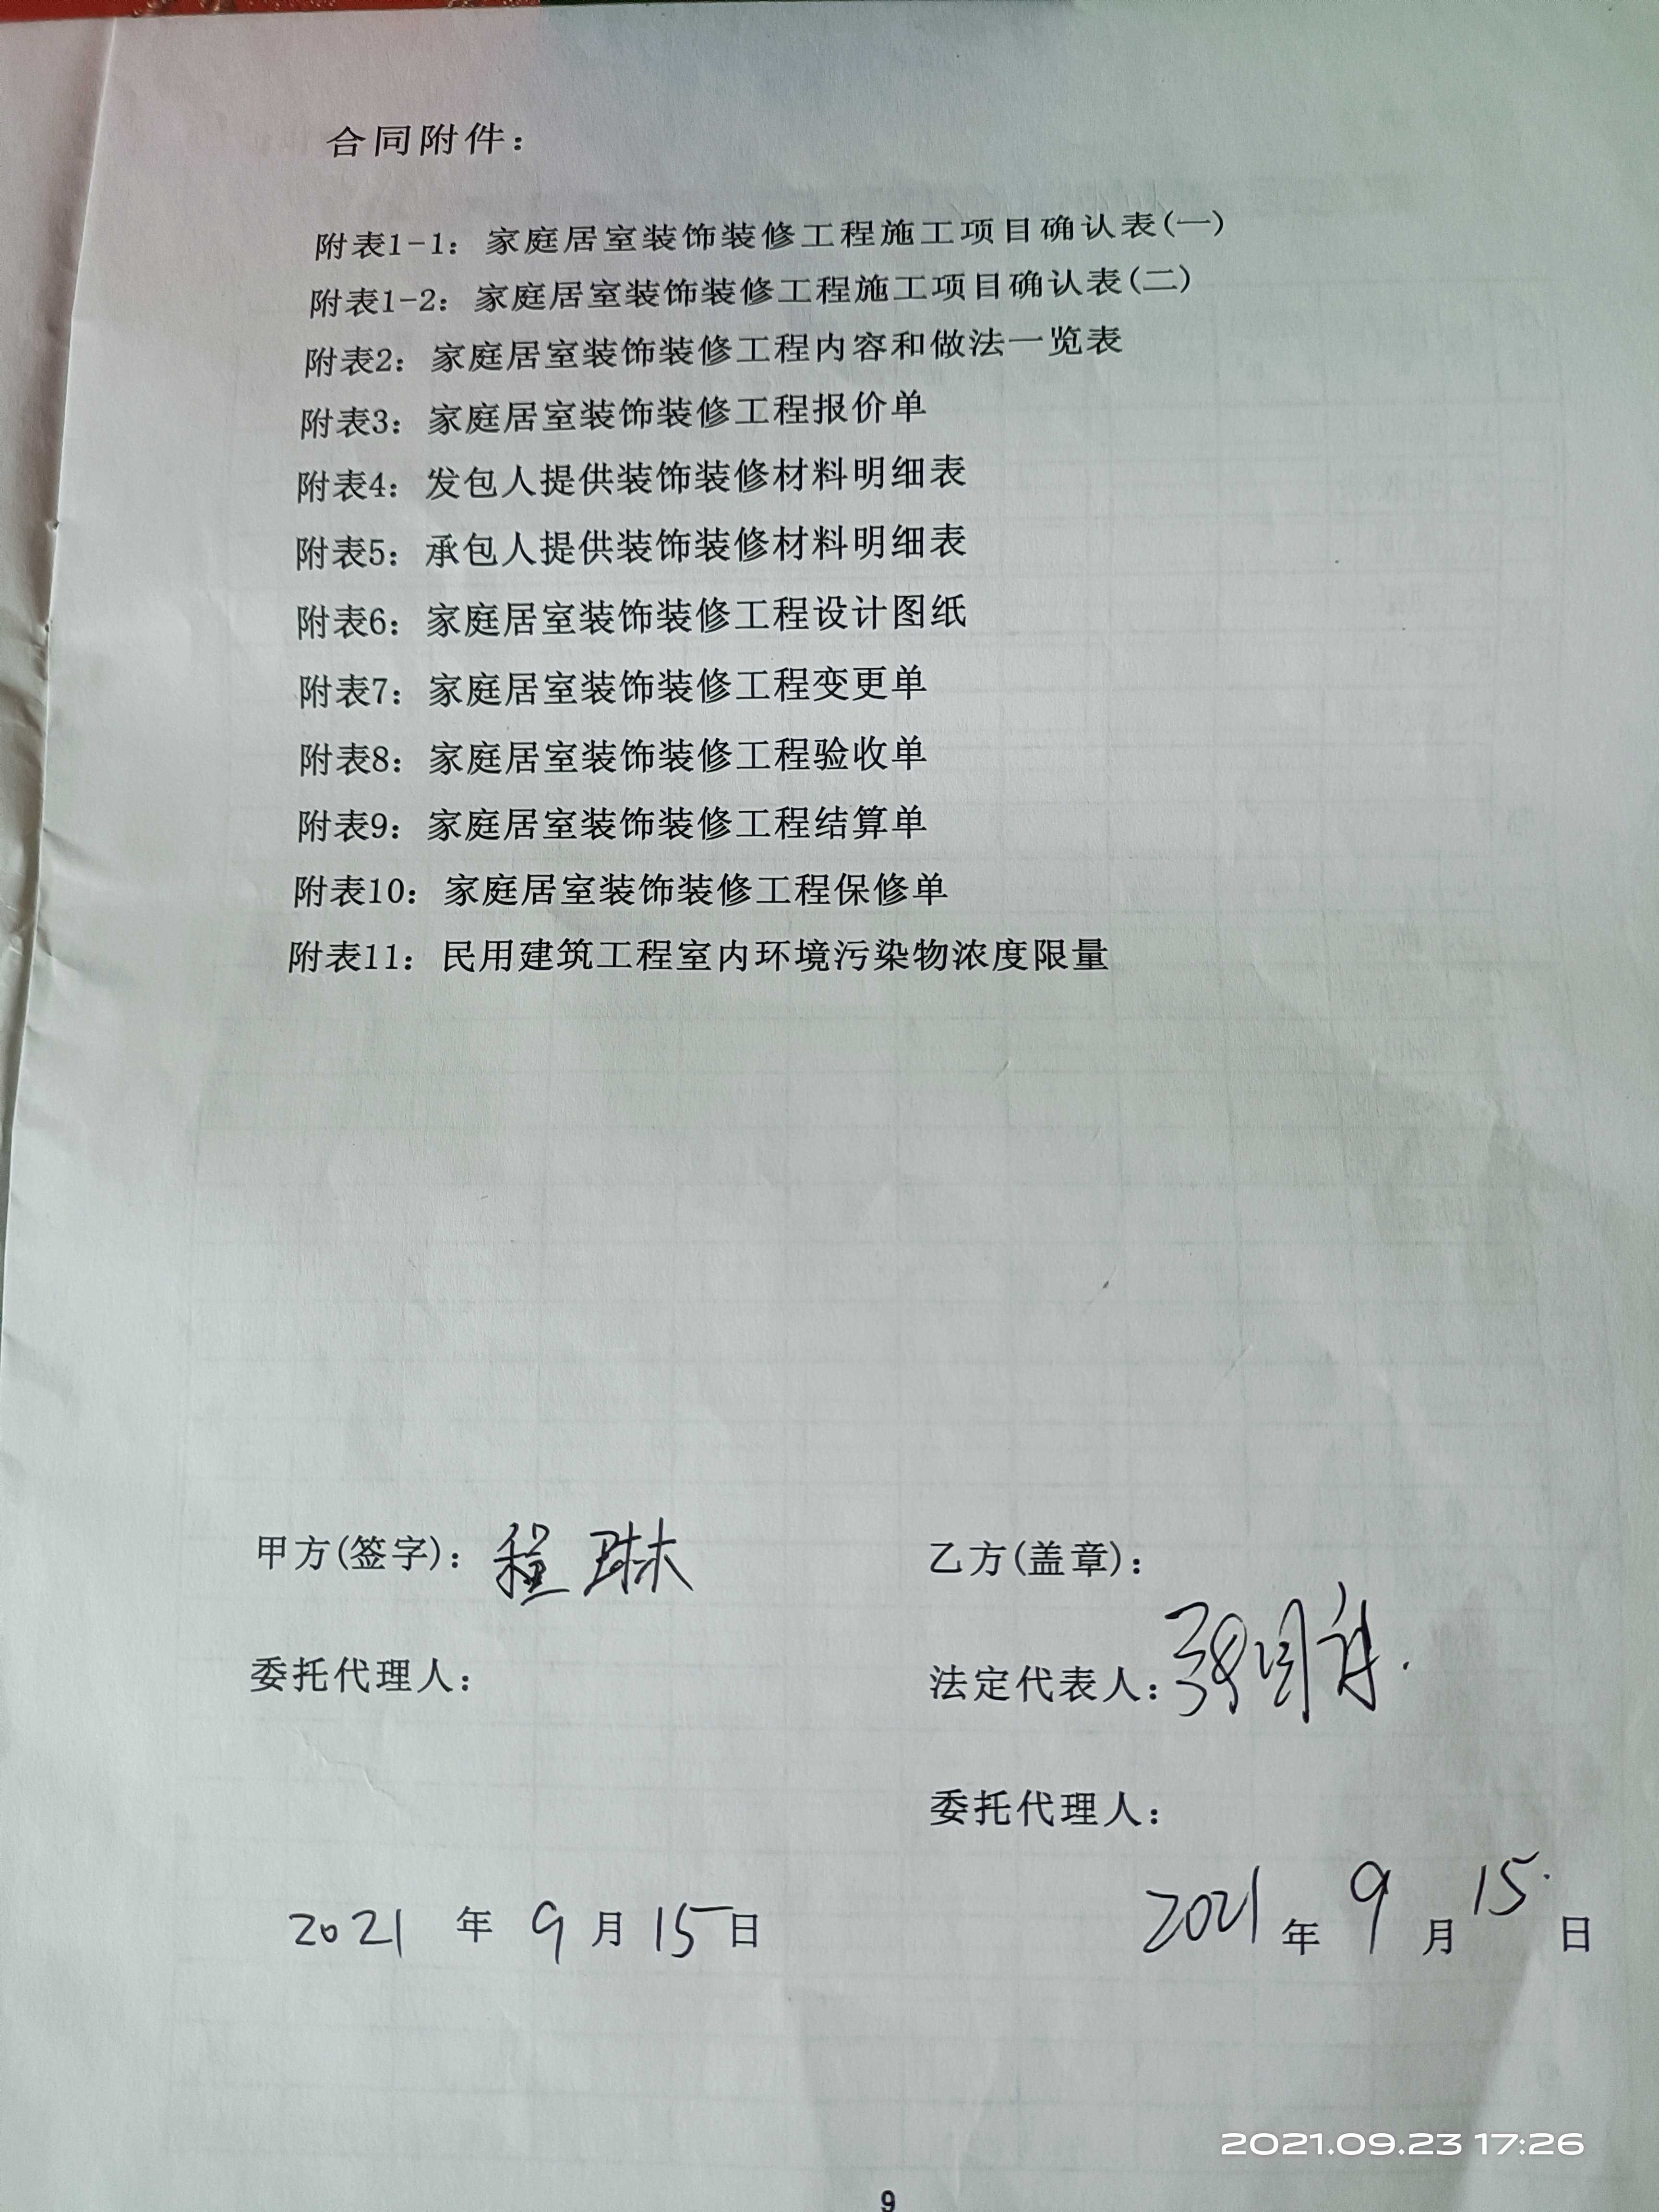 合同附件：
附表1-1：家庭居室装饰装修工程施工项目确认表(一)
附表1-2：家庭居室装饰装修工程施工项目确认表(二)
附表2：家庭居室装饰装修工程内容和做法一览表
附表3：家庭居室装饰装修工程报价单
附表4：发包人提供装饰装修材料明细表
附表5：承包人提供装饰装修材料明细表
附表6：家庭居室装饰装修工程设计图纸
附表7：家庭居室装饰装修工程变更单
附表8：家庭居室装饰装修工程验收单
附表9：家庭居室装饰装修工程结算单
附表10：家庭居室装饰装修工程保修单
附表11：民用建筑工程室内环境污染物浓度限量
甲方(签字)：程琳
乙方(盖章)：
委托代理人：
法定代表人：
委托代理人：
2021 年 9 月 15 日
2021 年 9 月 15 日
2021.09.23 17:26
9